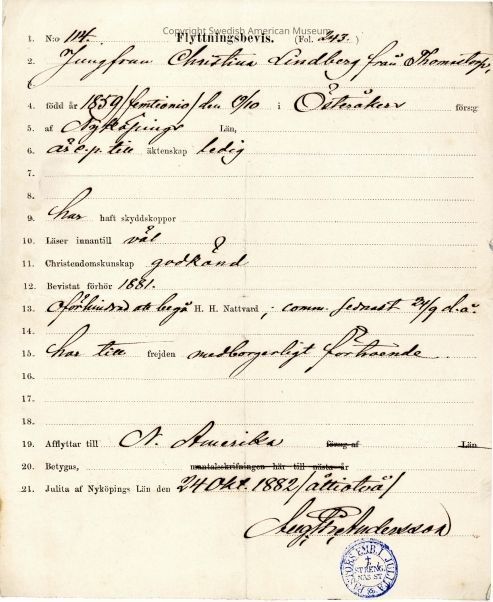 Copyright Swedish American Museum
1. N:o 114. Flyttningsbevis. (Fol. 243.)
2. Jungfrun Christina Lindberg från Thomastorp,
4. född år 1859 /femtionio/ den 19/10 i Österåkers förs:g
5. af Nyköpings Län,
6. är s.p. till äktenskap ledig
7.
8.
9. har haft skyddskoppor
10. Läser innantill väl
11. Christendomskunskap godkänd
12. Bevistat förhör 1881.
13. Oförhindrad att begå H. H. Nattvard, comm. sednast 24/9 d.å.
14.
15. har till frejden medborgerligt förtroende
16.
17.
18.
19. Afflyttar till N. Amerika förs:g af Län
20. Betygas, mantalsskrifningen här till nästa år
21. Julita af Nyköpings Län den 24 Okt. 1882 /åttiotvå/
Andersson
PASTORS EMB. I JULITA
STRENG
NÄS ST